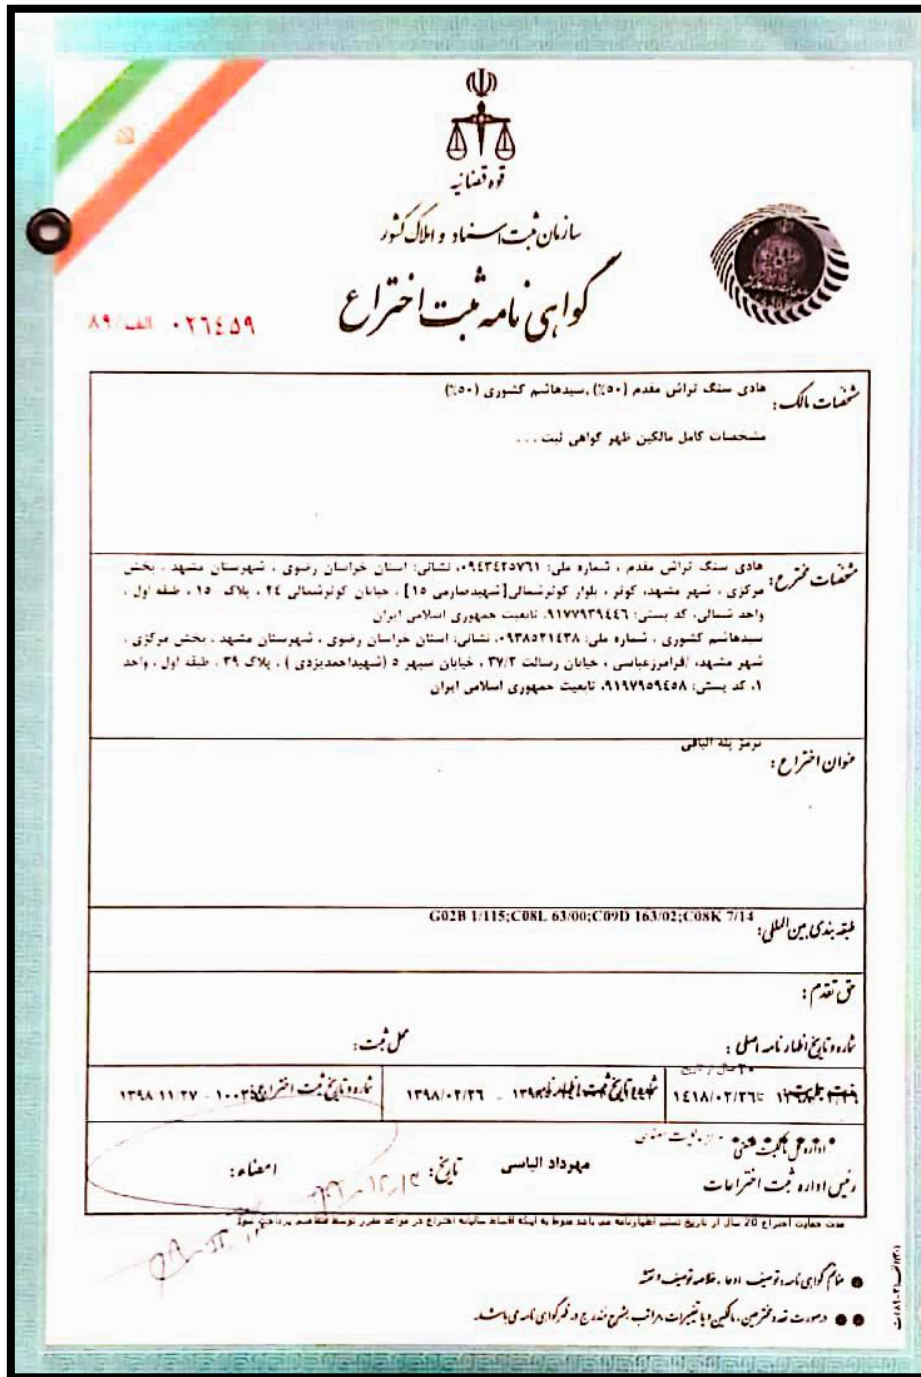 قوه قضائیه
سازمان ثبت اسناد و املاک کشور
گواهی نامه ثبت اختراع
۰۲٦٤٥٩ الف/۸۹
مشخصات مالک:
هادی سنگ تراش مقدم (۵۰٪),سیدهاشم کشوری (۵۰٪)
مشخصات کامل مالکین ظهر گواهی ثبت ...
مشخصات مخترع:
هادی سنگ تراش مقدم ، شماره ملی: ۰۹٤٣٤٢٥٧٦١، نشانی: استان خراسان رضوی ، شهرستان مشهد ، بخش
مرکزی ، شهر مشهد، کوثر ، بلوار کوثرشمالی[شهیدصارمی ۱۵] ، خیابان کوثرشمالی ۲٤ ، پلاک ۱۵ ، طبقه اول ،
واحد شمالی، کد پستی: ۹۱۷۷۹۳۹٤٤٦، تابعیت جمهوری اسلامی ایران
سیدهاشم کشوری ، شماره ملی: ۰۹۳۸۵۲۱٤۳۸، نشانی: استان خراسان رضوی ، شهرستان مشهد ، بخش مرکزی ،
شهر مشهد، /فرامرزعباسی ، خیابان رسالت ۳۷/۲ ، خیابان سپهر ۵ (شهیداحمدیزدی ) ، پلاک ۳۹ ، طبقه اول ، واحد
۱، کد پستی: ۹۱۹۷۹۵۹٤۵۸، تابعیت جمهوری اسلامی ایران
عنوان اختراع:
طبقه بندی بین المللی:
G02B 1/115;C08L 63/00;C09D 163/02;C08K 7/14
حق تقدم:
شماره و تاریخ اظهارنامه اصلی:
محل ثبت:
۱٤۱۸/۰۲/۲٦
شماره و تاریخ ثبت اظهارنامه:
۱۳۹۸/۰۲/۲٦
شماره و تاریخ ثبت اختراع:
۱۳۹۸/۱۱/۲۷
اداره کل مالکیت صنعتی
رئیس اداره ثبت اختراعات
مهرداد الیاسی
تاریخ:
امضاء:
مدت حمایت اختراع 20 سال از تاریخ تسلیم اظهارنامه می باشد منوط به اینکه اقساط سالیانه اختراع در مواعد مقرر توسط متقاضی پرداخت شود
ضمائم گواهی نامه: توصیف، ادعا، خلاصه توصیف و نقشه
درصورت تعدد مخترعین، مالکین و یا تغییرات مراتب بشرح مندرج در ظهر گواهی نامه می باشد.